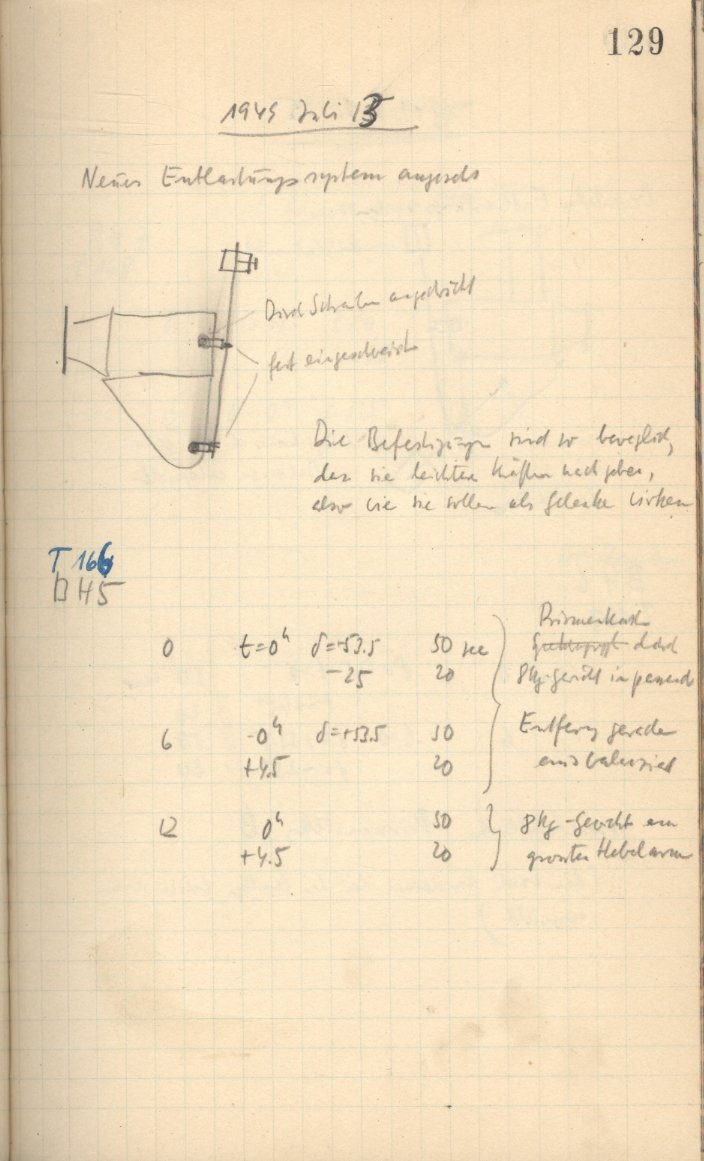 129
1945 Juli 15
Neues Entlastungssystem angesetzt
Durch Schrauben angedrückt
fest eingeschraubt
Die Befestigungen sind so beweglich,
dass sie leichten Kräften nachgeben,
also wie sie sollen als Gelenke wirken
T 166
B H5
0 t=0ʰ δ=+53.5 50 sec
−25 20
6 -0ʰ δ=+53.5 50
+4.5 20
12 0ʰ 50
+4.5 20
durch
8kg-Gewicht in passend
Entferng gerade
ausbalanziert
8kg-Gewicht am
grossten Hebelarm